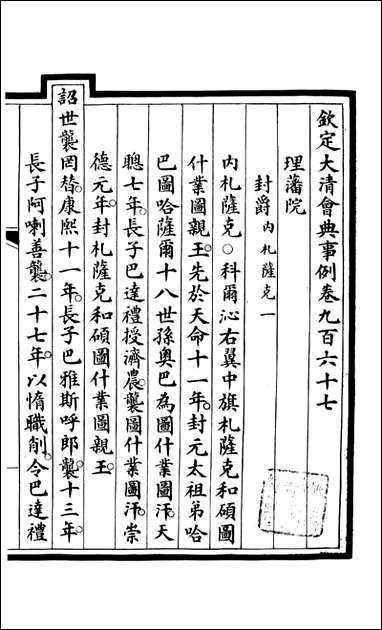 欽定大清會典事例卷九百六十七
理藩院
封爵內札薩克一
內札薩克○科爾沁右翼中旗札薩克和碩圖
什業圖親王先於天命十一年封元太祖弟哈
巴圖哈薩爾十八世孫奧巴為圖什業圖汗天
聰七年長子巴達禮授濟農襲圖什業圖汗崇
德元年封札薩克和碩圖什業圖親王
詔世襲罔替康熙十一年長子巴雅斯呼郎襲十三年
長子阿喇善襲二十七年以惰職削令巴達禮